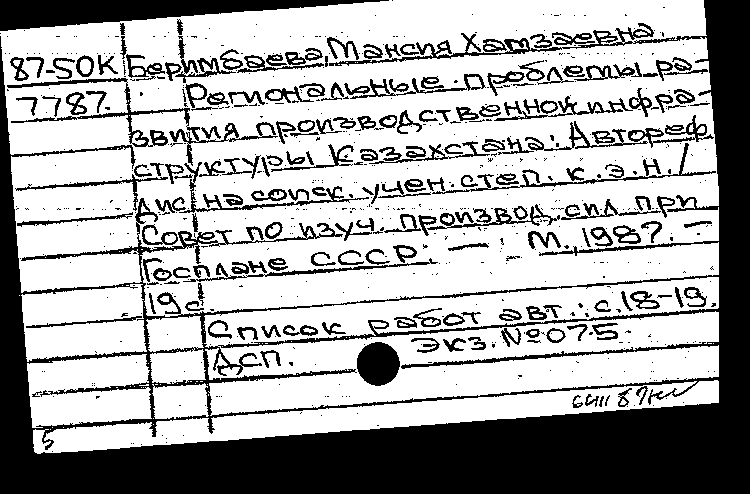 87-50К Беримбаева, Мансия Хатзаевна.
7787. Региональные проблемы ра-
звития производственной инфра-
структуры Казахстана: Автореф.
дис. на соиск. учен. степ. к.э.н. /
Совет по изуч. производ. сил при
Госплане СССР. — : М., 1987. —
19 с
Список работ авт.: с. 18-19.
ДСП. Экз. №075.
5